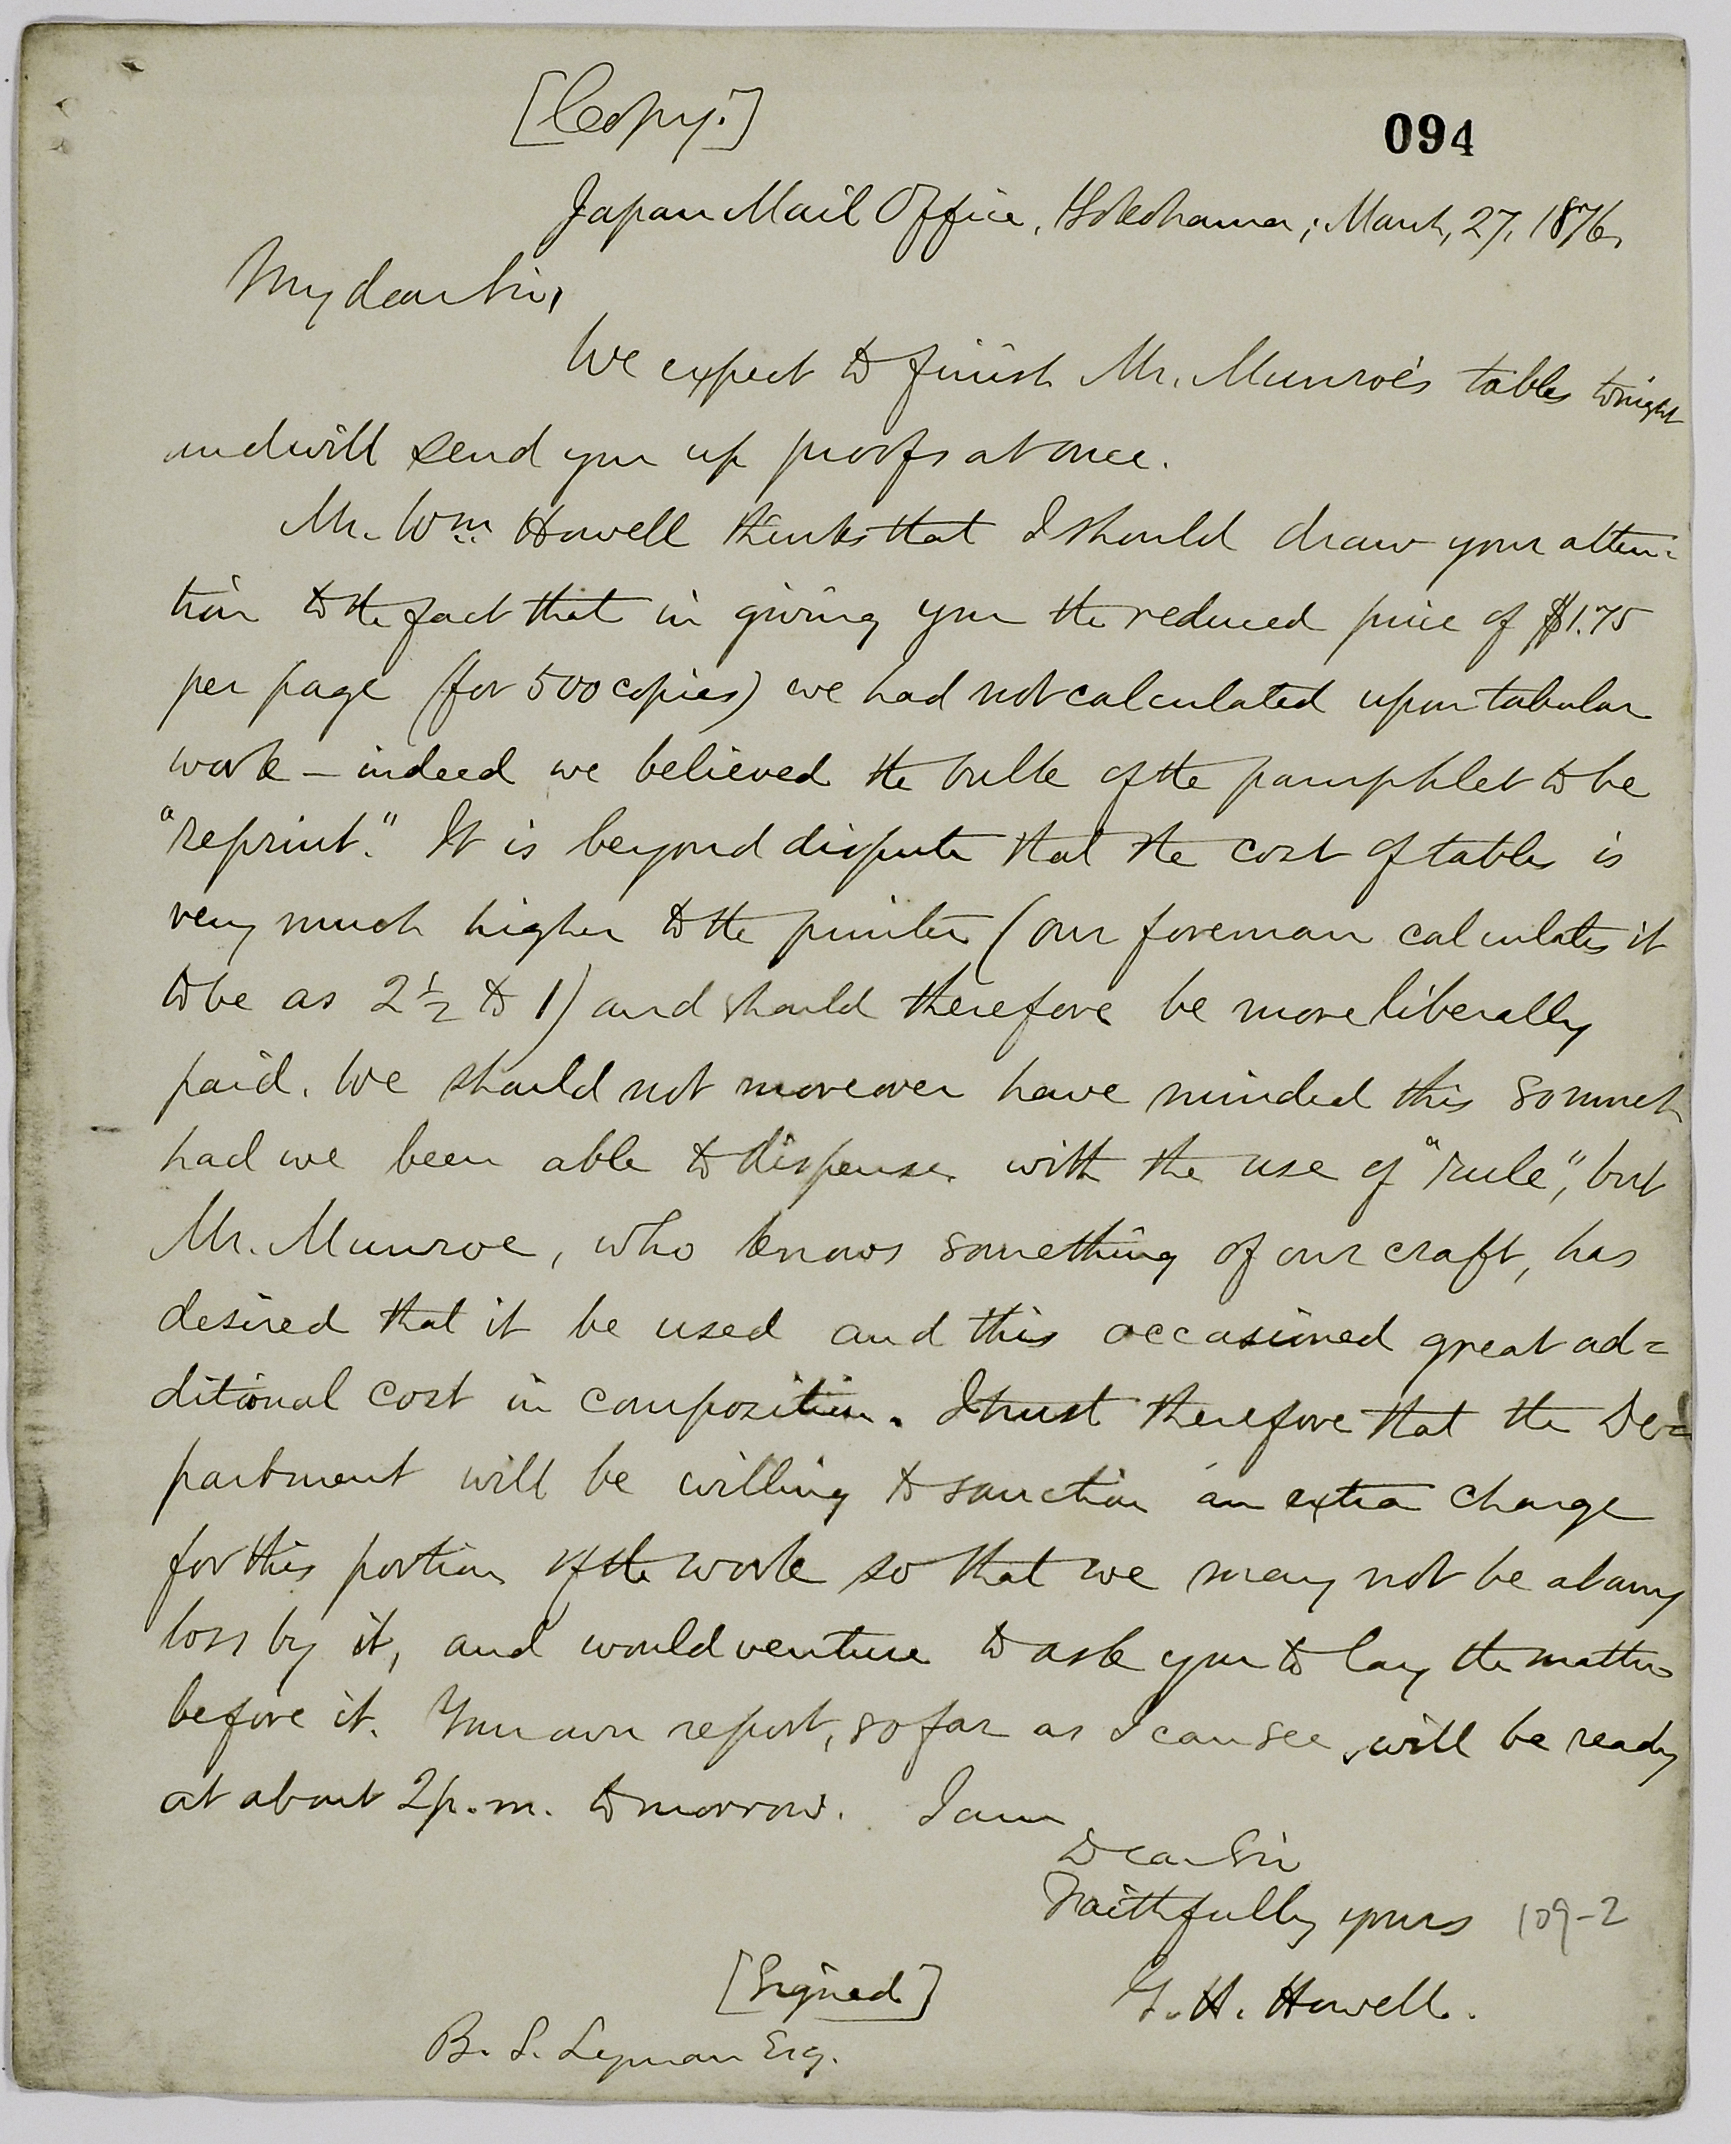 [Copy.]
094
Japan Mail Office, Yokohama; March, 27, 1876.
My dear Sir,
We expect to finish Mr. Munroe's tables tonight
and will send you up proofs at once.
Mr. Wm. Howell thinks that I should draw your atten-
tion to the fact that in giving you the reduced price of $1.75
per page (for 500 copies) we had not calculated upon tabular
work — indeed we believed the bulk of the pamphlet to be
"reprint." It is beyond dispute that the cost of tables is
very much higher to the printer (our foreman calculates it
to be as 2½ to 1) and should therefore be more liberally
paid. We should not moreover have minded this so much
had we been able to dispense with the use of "rule", but
Mr. Munroe, who knows something of our craft, has
desired that it be used and this occasioned great ad=
ditional cost in composition. I trust therefore that the De=
partment will be willing to sanction an extra charge
for this portion of the work so that we may not be at any
loss by it, and would venture to ask you to lay the matter
before it. Your own report, so far as I can see, will be ready
at about 2 p.m. tomorrow. I am
Dear Sir
Faithfully yours
109-2
[Signed]
G. H. Howell.
B. S. Lyman Esq.